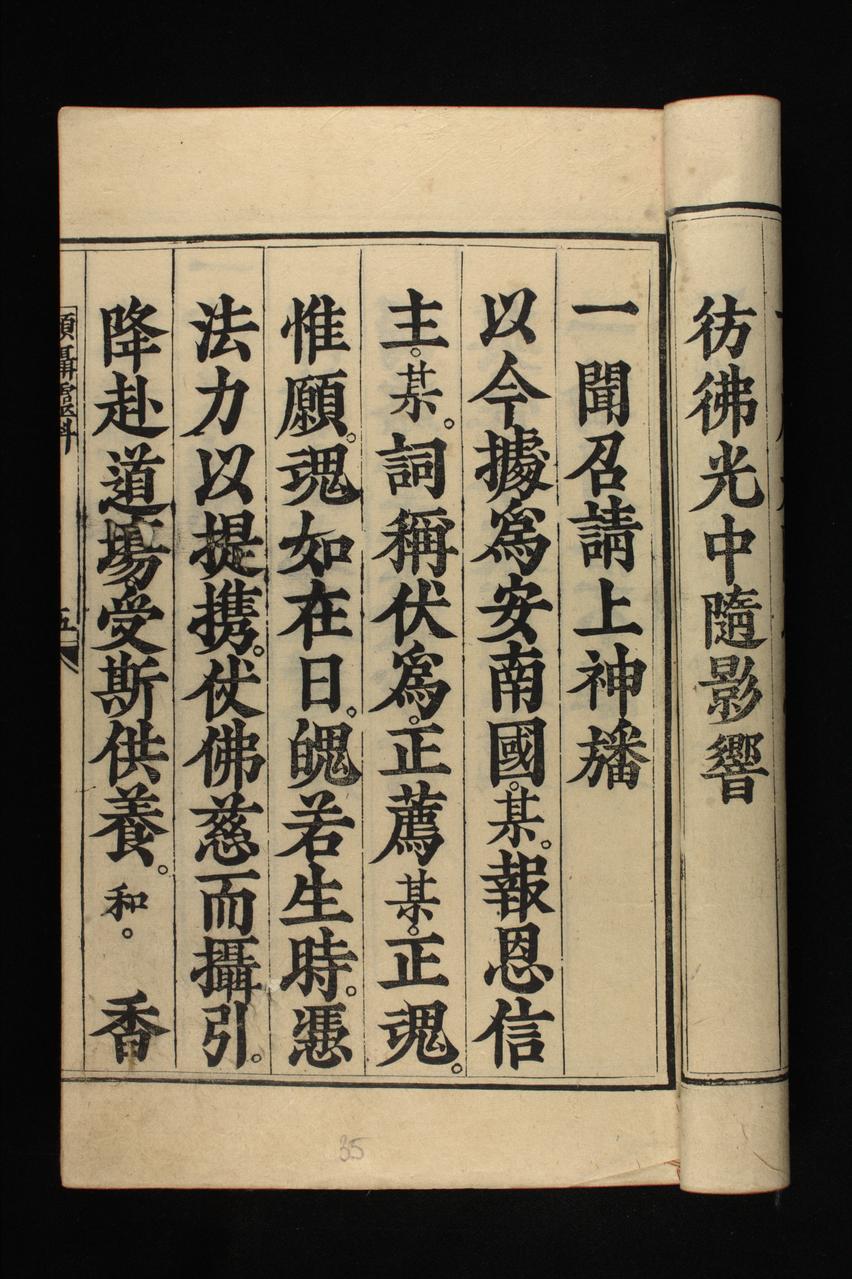 彷彿光中隨影響
一聞召請上神旛
以今據爲安南國。某。報恩信
主。某。詞稱伏爲。正薦某。正魂。
惟願。魂如在日。魄若生時。憑
法力以提携。仗佛慈而攝引。
降赴道場。受斯供養。和。 香
攝靈科
五
35